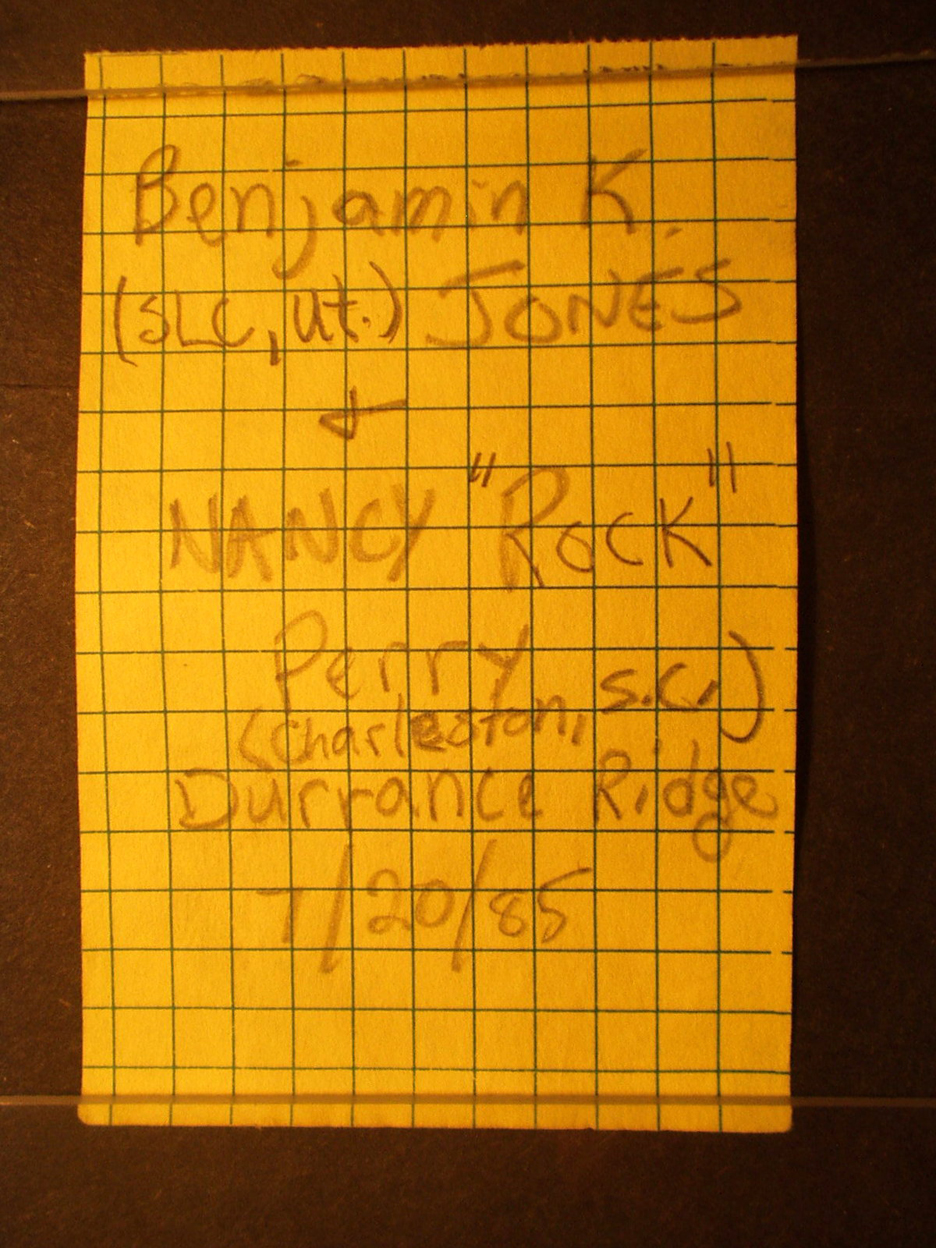 Benjamin K.
(SLC, Ut.) JONES
+
NANCY "ROCK"
Perry
(Charleston, S.C.)
Durrance Ridge
7/20/85